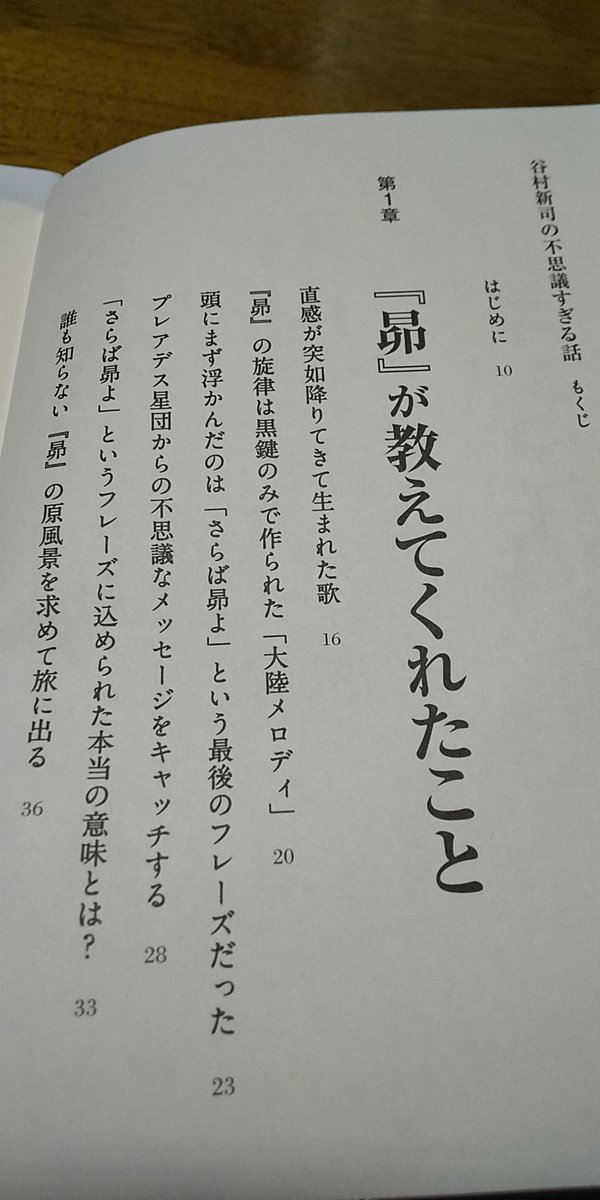 谷村新司の不思議すぎる話　もくじ
はじめに　10
第1章
『昴』が教えてくれたこと
直感が突如降りてきて生まれた歌　16
『昴』の旋律は黒鍵のみで作られた「大陸メロディ」　20
頭にまず浮かんだのは「さらば昴よ」という最後のフレーズだった　23
プレアデス星団からの不思議なメッセージをキャッチする　28
「さらば昴よ」というフレーズに込められた本当の意味とは？　33
誰も知らない『昴』の原風景を求めて旅に出る　36